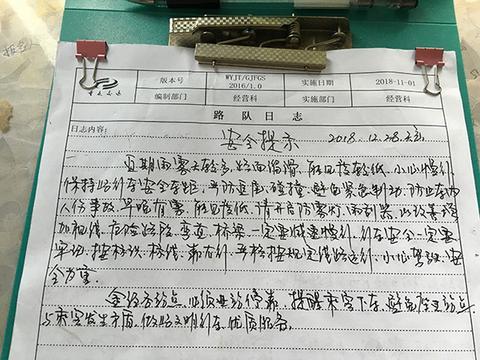 版本号 WYJT/GJFGS 2016/1.0 实施日期 2018-11-01
编制部门 经营科 实施部门 经营科
路 队 日 志
日志内容:
安全提示 2018.12.28.
近期雨雾天较多,路面湿滑,能见度较低,小心慢行,
保持好行车安全车距,严防追尾碰撞,避免紧急制动,防止车内
人伤事故,早晚有雾,能见度低,请开启防雾灯,雨刮器,以改善
视线,在险路段,弯道,桥梁一定要减速慢行,行车安全一定要
牢记,按标识,标线,靠右行,严格按规定线路运行,小心驾驶,安
全为重。
站点,必须进站停靠,提醒乘客下车,避免在站点
与乘客发生矛盾,做好文明行车,优质服务。